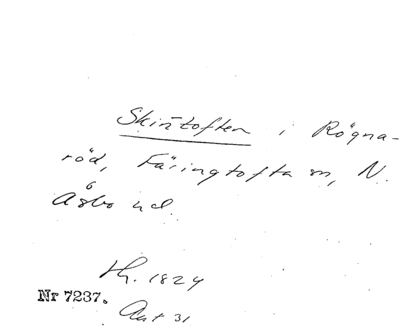 Skintoften i Rögna-
röd, Färingtofta sn, N.
Åsbo hd.
Lh. 1824
Nr 7237.
Akt 31